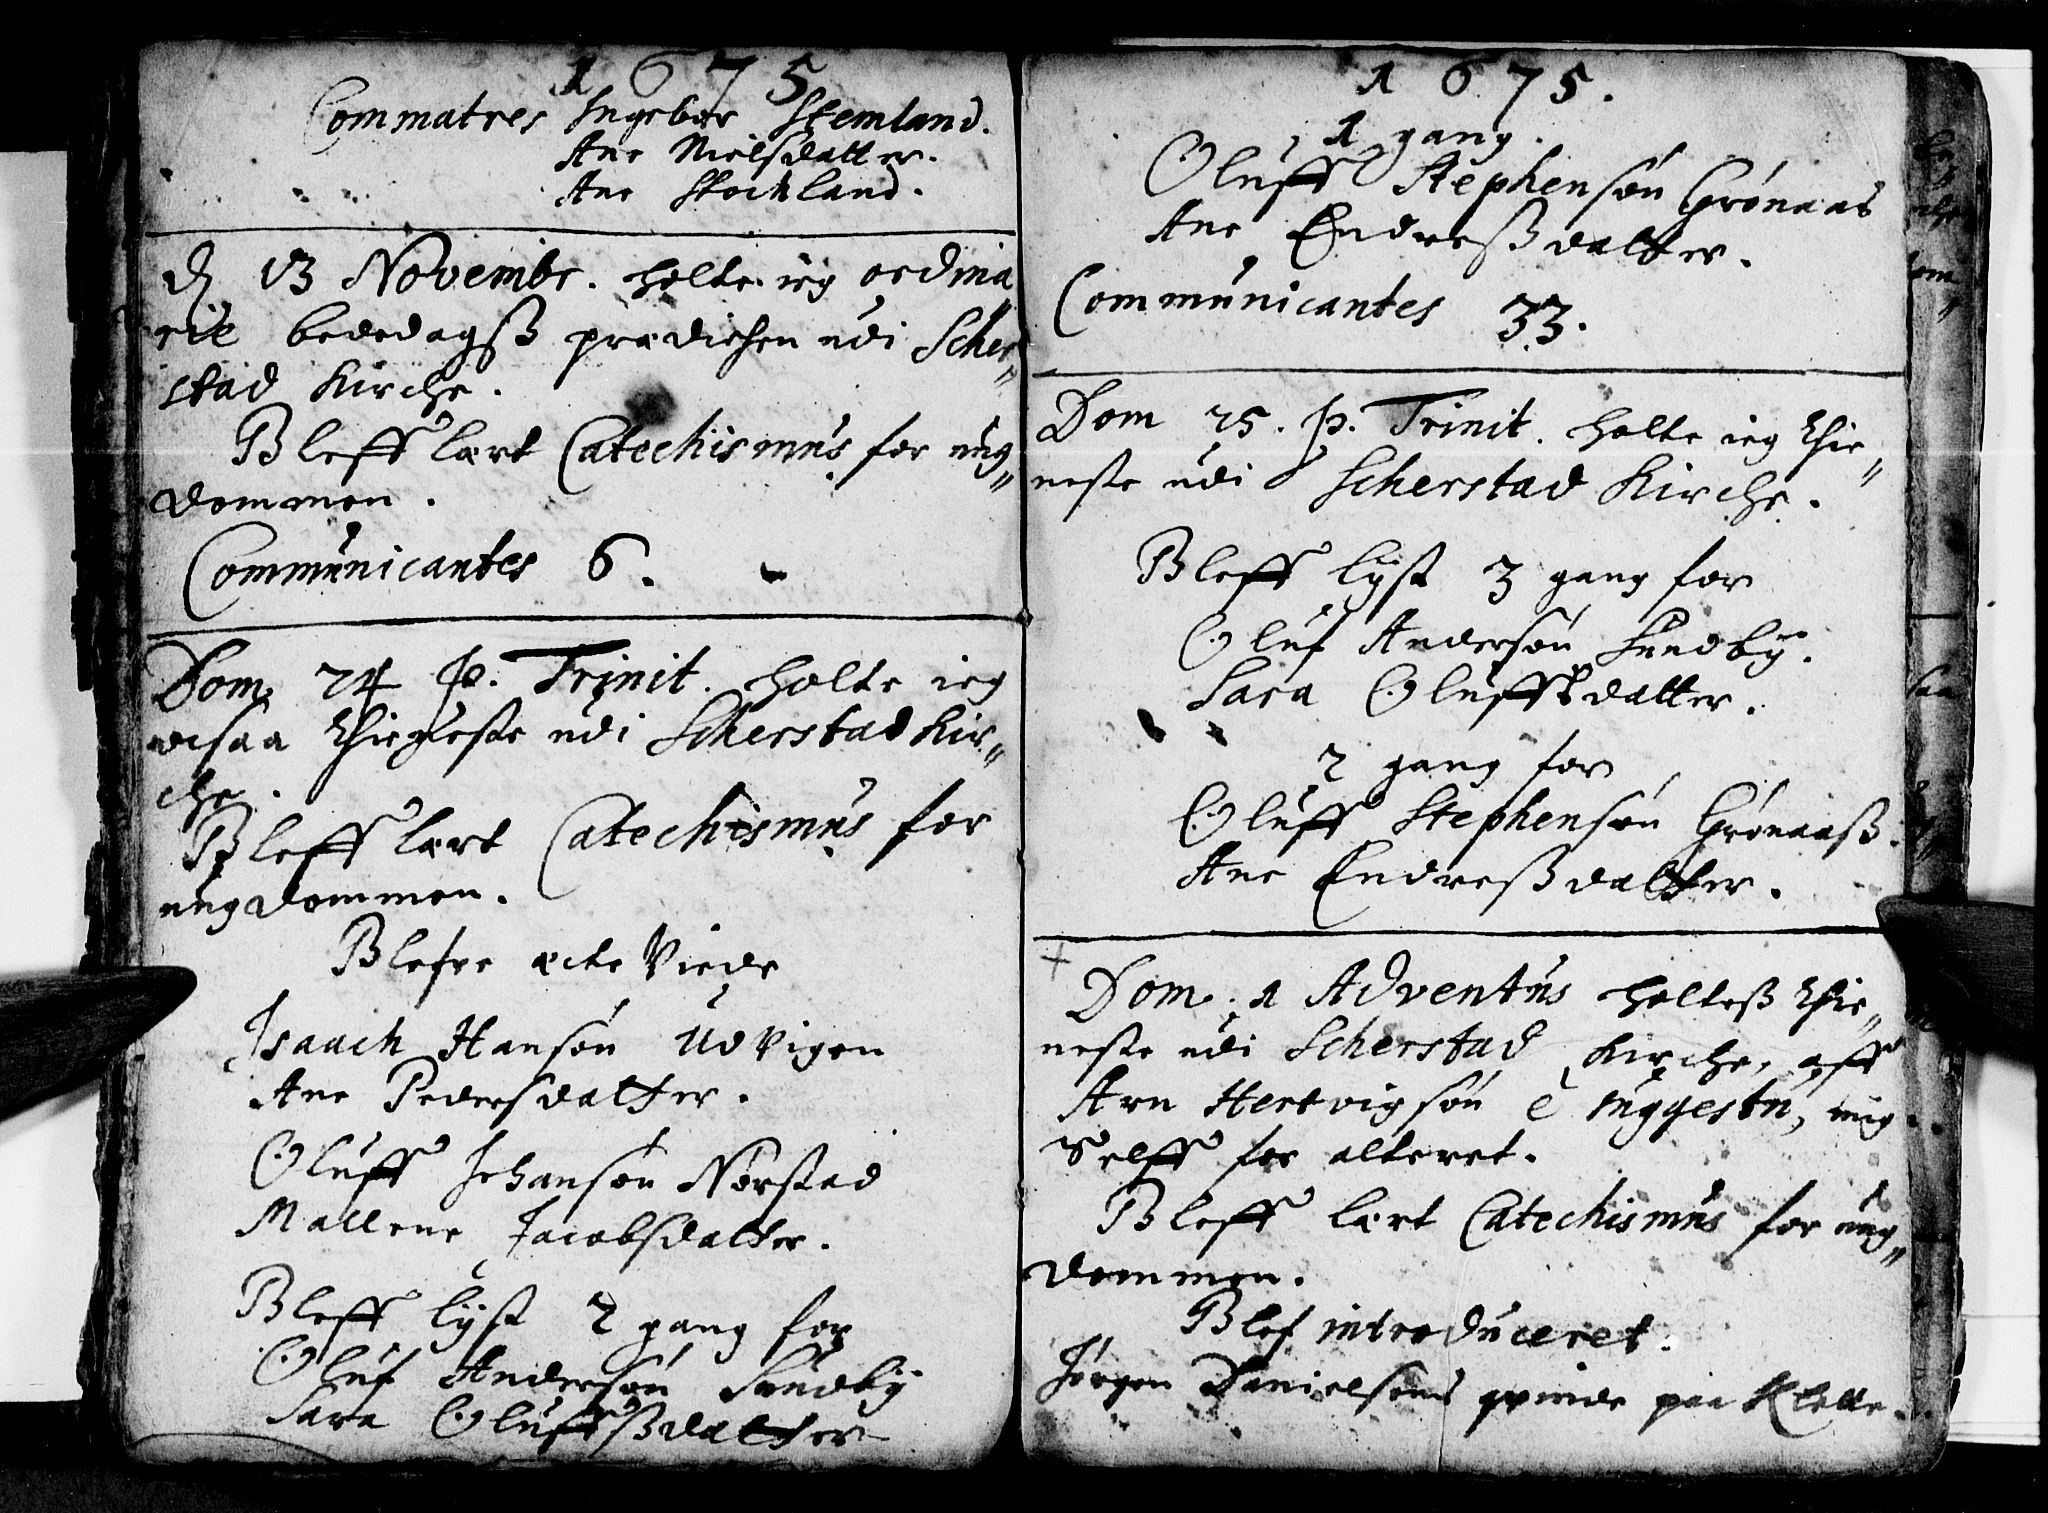 1675
Commatres Ingebor Stemland.
Ane Nielsdatter.
Ane Stochland.
d 13 Novembr. holte ieg ordina"
rie bededagsß prædichen udi Scher"
stad Kirche.
Bleff lært Catechismus for ung"
dommen.
Communicantes 6.
Dom. 24 p. Trinit. holte ieg
ocsaa thieneste udi Scherstad Kir"
che.
Bleff lært Catechismus for
ungdommen.
Blefve ecte Viede
Isaach Hansøn Udvigen
Ane Pedersdatter.
Oluff Johansøn Nørstad
Mallene Jacobsdatter.
Bleff lyst 2 gang for
Oluf Andersøn Sundby
Sara Oluffsßdatter
1675.
1 gang.
Oluff Stephensøn Grønaas
Ane Endresßdatter.
Communicantes 33.
Dom 25. p. Trinit. holte ieg thie"
neste udi Scherstad Kirche.
Bleff lyst 3 gang for
Oluf Andersøn Sundby.
Sara Oluffsdatter.
2 gang for
Oluff Stephensøn Grønaaß.
Ane Endresßdatter.
Dom. 1 Adventus holteß thie"
neste udi Scherstad Kirche, aff
Arn Hertvigsøn e suggestu, mig
Selff for alteret.
Bleff lært Catechismus for ung"
dommen.
Blef introduceret.
Jørgen Danielsøns qvinde paa Klette.